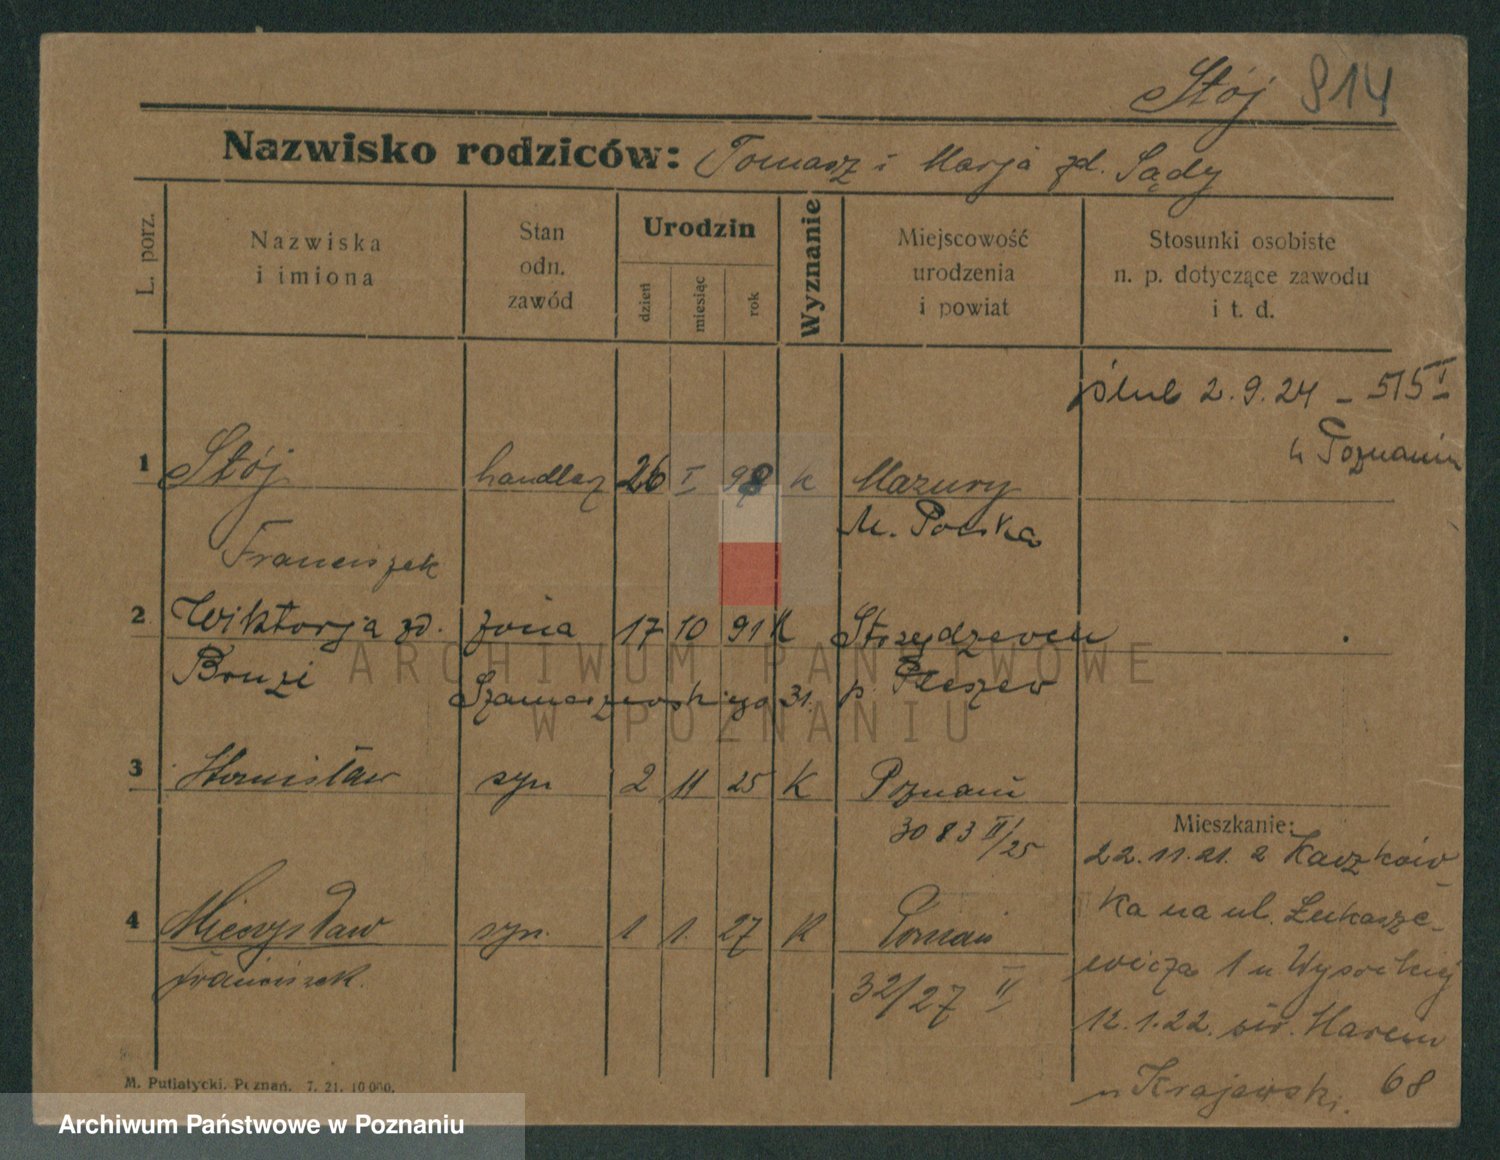 Stój 814
Nazwisko rodziców: Tomasz i Marja zd. Sądy
L. porz.
Nazwiska
i imiona
Stan
odn.
zawód
Urodzin
dzień
miesiąc
rok
Wyznanie
Miejscowość
urodzenia
i powiat
Stosunki osobiste
n. p. dotyczące zawodu
i t. d.
ślub 2.9.24 – 515 I
w Poznaniu
1 Stój handlarz 26 I 98 K Mazury
M. Polska
Franciszek
2 Wiktorja zd. żona 17 10 91 K
p. Pleszew
3 Stanisław syn 2 11 25 K Poznań
3083 II/25
4 Mieczysław syn. 1 1. 27 K Poznań
Franciszek.
32/27 II
Mieszkanie:
22.11.21. z Kaczków-
ka na ul. Łukasze-
wicza 1 u Wysockiej
12.1.22. św. Marcin
u Krajewski. 68
M. Putiatycki. Poznań. 7. 21. 10 000.
ARCHIWUM PAŃSTWOWE
W POZNANIU
Archiwum Państwowe w Poznaniu